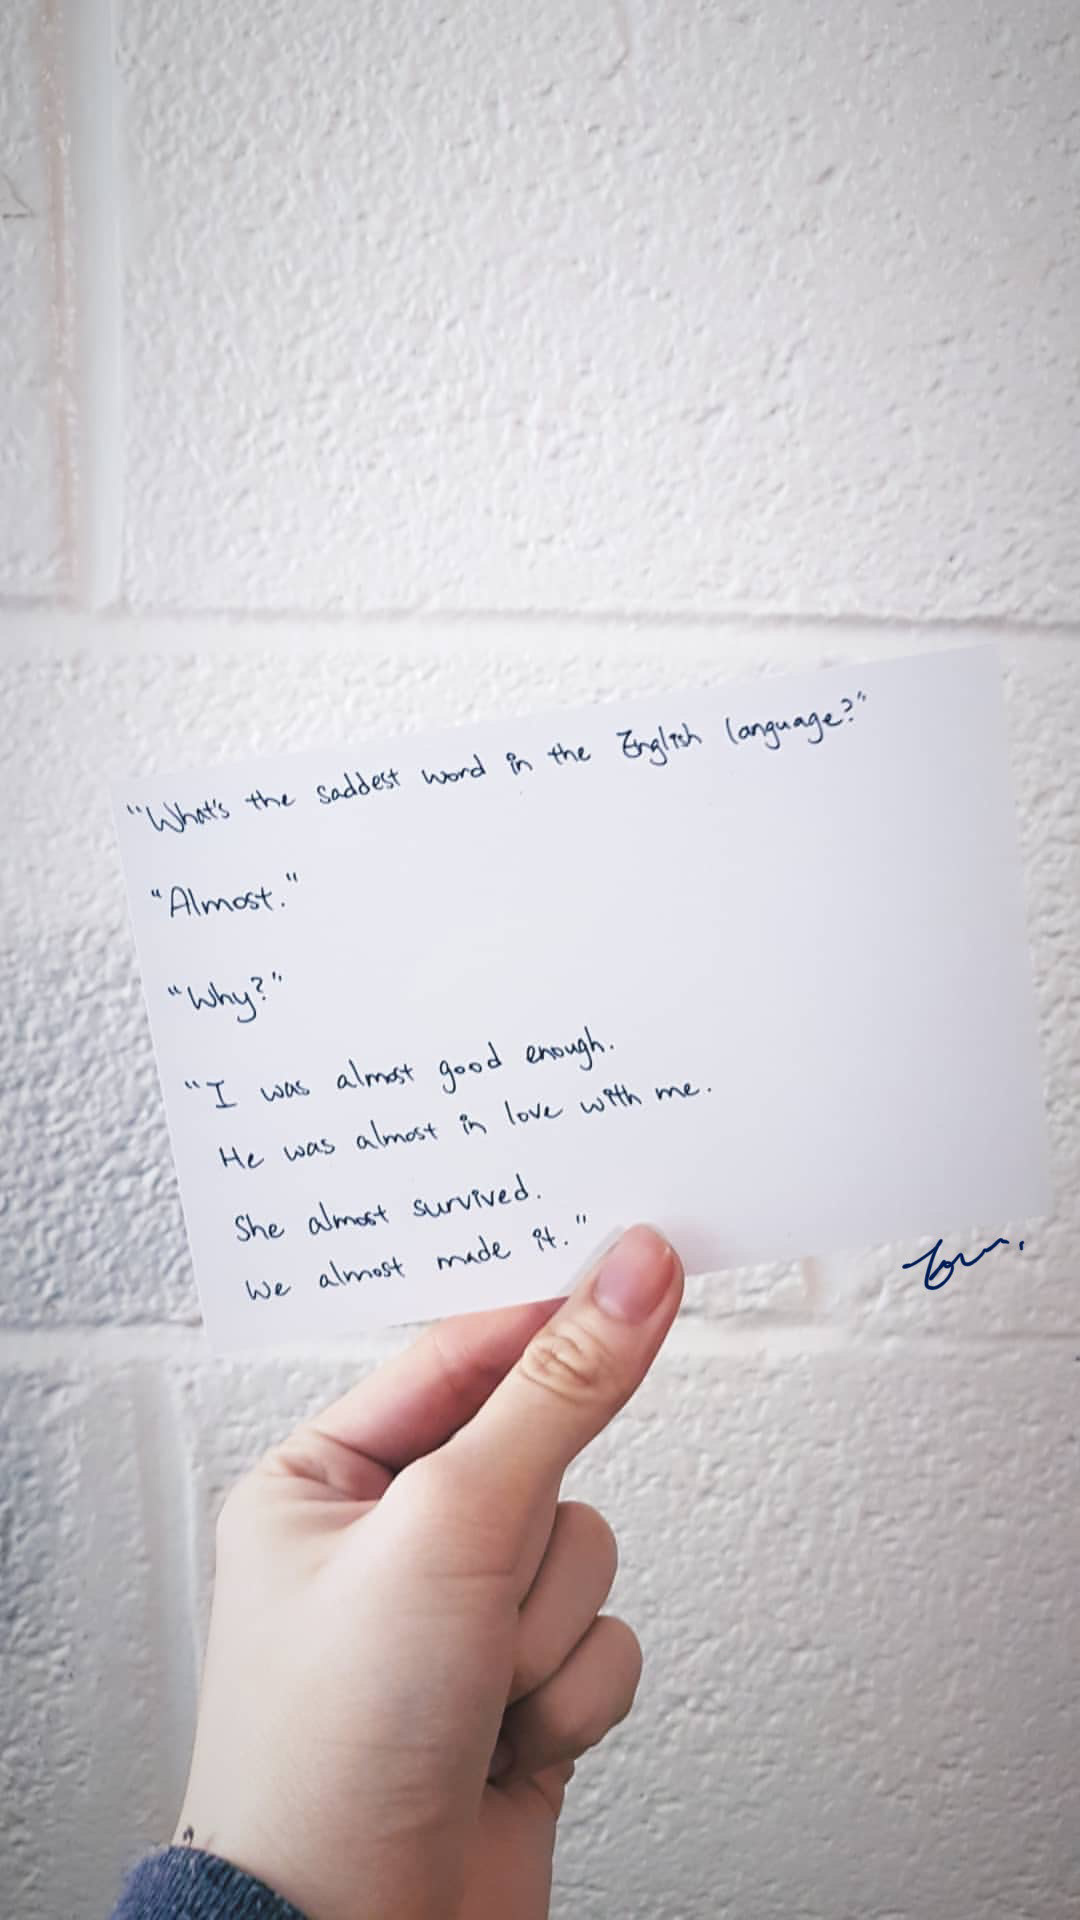 "What's the saddest word in the English language?"
"Almost."
"Why?"
"I was almost good enough.
He was almost in love with me.
She almost survived.
We almost made it."